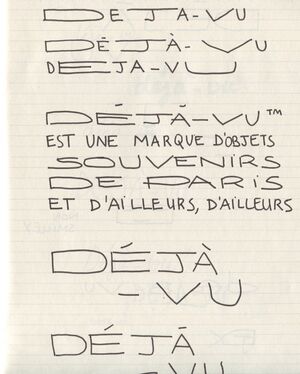 DEJA-VU
DÉJÀ-VU
DEJA-VU
DÉJÀ-VU™
EST UNE MARQUE D'OBJETS
SOUVENIRS
DE PARIS
ET D'AILLEURS, D'AILLEURS
DÉJÀ
-VU
DÉJÀ
-VU